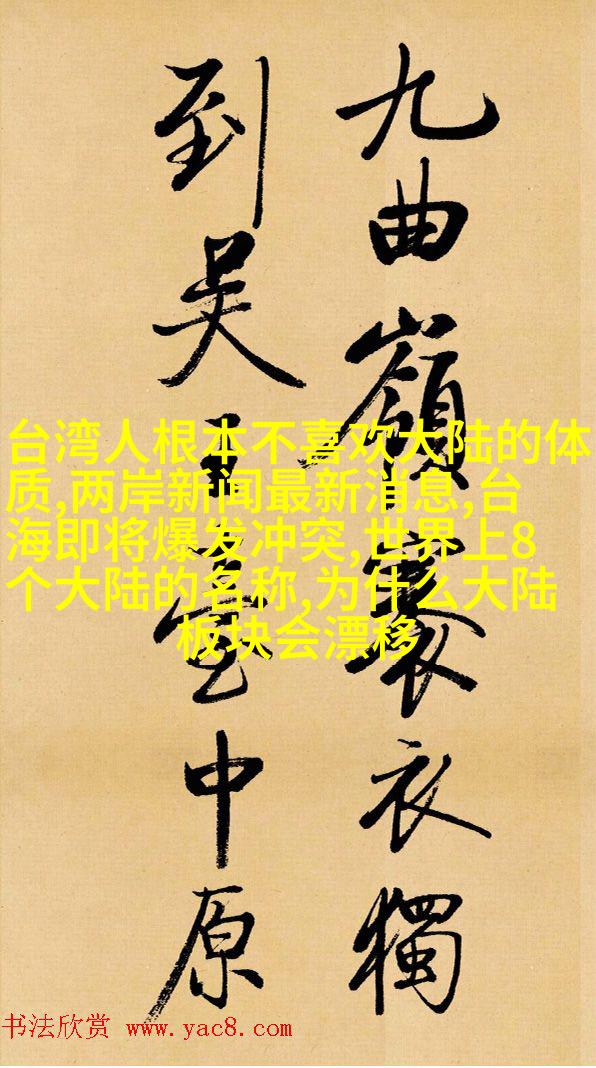 九曲嶺褰衣獨
到吴王臺中原
台湾人根本不喜欢大陆的体
质,两岸新闻最新消息,台
海即将爆发冲突,世界上8
个大陆的名称,为什么大陆
板块会漂移
书法欣赏 www.yac8.com